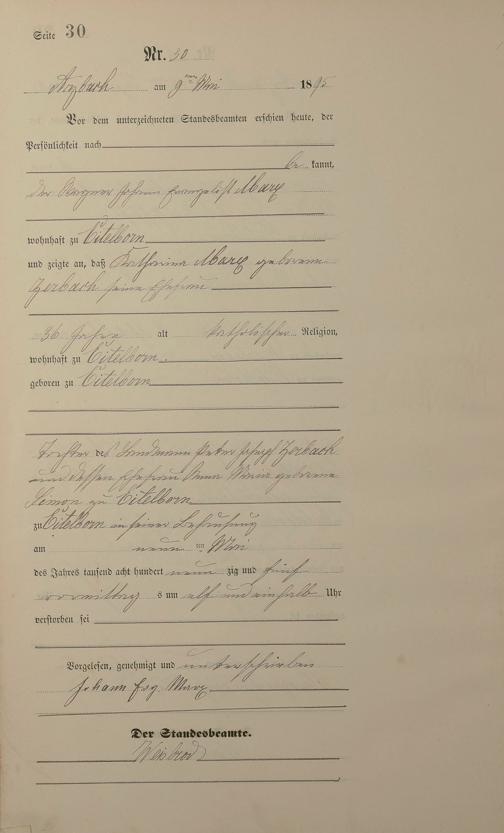 Seite 30
Nr. 30
Arzbach am 9ten Mai 1895
Vor dem unterzeichneten Standesbeamten erschien heute, der
Persönlichkeit nach
be kannt,
der Johann Evangelist Marx
wohnhaft zu Eitelborn
und zeigte an, daß Katharina Marx geborene
Zerbach seine Ehefrau
36 Jahre alt katholischer Religion,
wohnhaft zu Eitelborn
geboren zu Eitelborn
Tochter des Landmann Peter Joseph Zerbach
und dessen Ehefrau Anna Maria geborene
Simon zu Eitelborn
zu Eitelborn in seiner Behausung
am neun ten Mai
des Jahres tausend acht hundert neun zig und fünf
vormittag s um elf und einhalb Uhr
verstorben sei
Vorgelesen, genehmigt und unterschrieben
Johann Evg. Marx
Der Standesbeamte.
Weisbrod